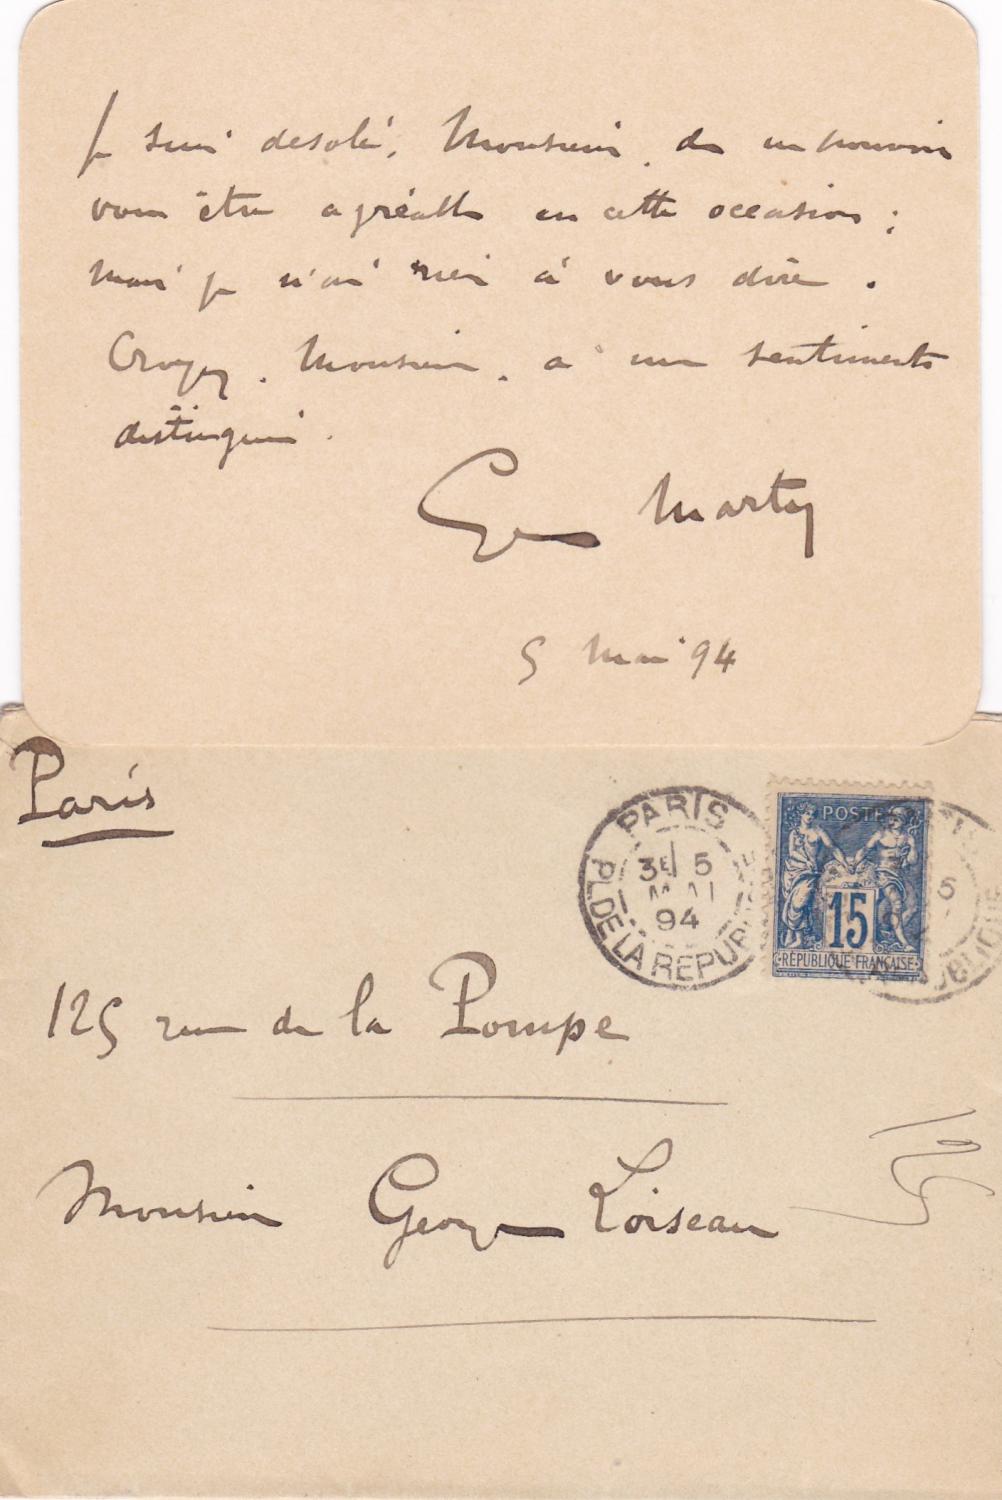 Je suis désolé, Monsieur, de ne pouvoir
vous être agréable en cette occasion ;
mais je n'ai rien à vous dire .
Croyez, Monsieur, à mes sentiments
distingués .
Geo Marty
5 Mai 94
Paris
PARIS
3E 5
MAI
94
PL. DE LA REPUBLIQUE
POSTE
15
RÉPUBLIQUE FRANÇAISE
5
REPUBLIQUE
125 rue de la Pompe
Monsieur Georges Loiseau